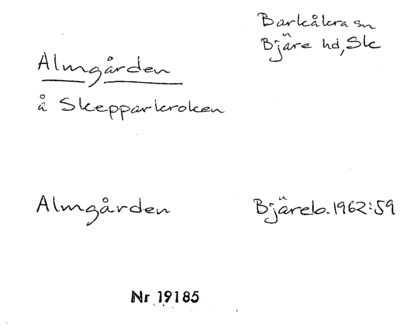 Barkåkra sn
Bjäre hd, Sk
Almgården
å Skepparkroken
Almgården
Bjäreb. 1962:59
Nr 19185